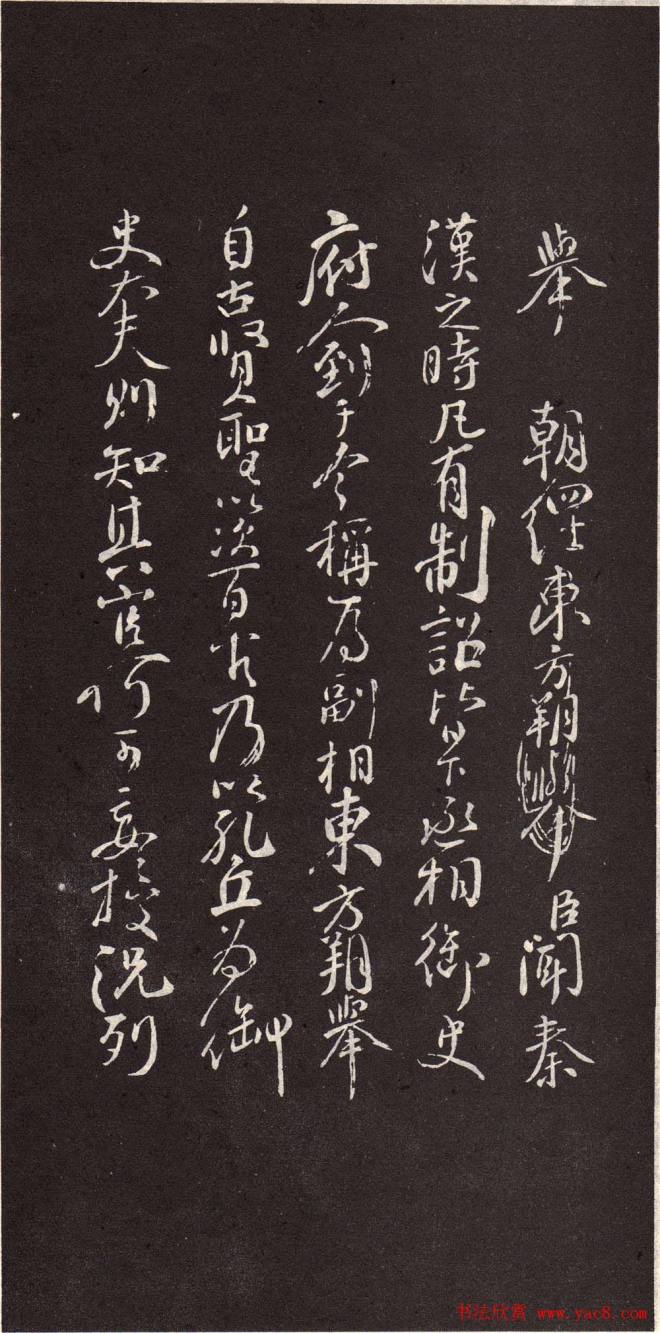 舉 朝東方朔舉臣聞秦
漢之時凡有制詔皆下丞相御史
府人到于今稱為副相東方朔舉
自古賢聖以次百官乃以孔丘為御
史大夫則知其官何可妄授況列
书法欣赏 www.yac8.com